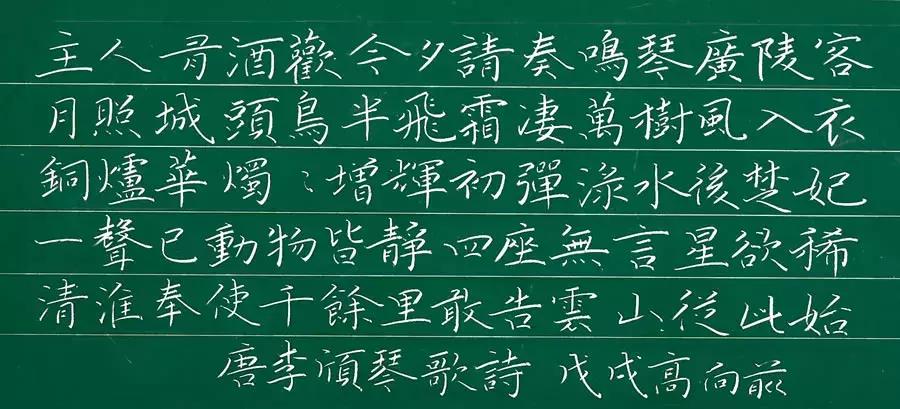 主人有酒歡今夕請奏鳴琴廣陵客
月照城頭烏半飛霜凄萬樹風入衣
銅爐華燭燭增輝初彈淥水後楚妃
一聲已動物皆靜四座無言星欲稀
清淮奉使千餘里敢告雲山從此始
唐李頎琴歌詩 戊戌高向前